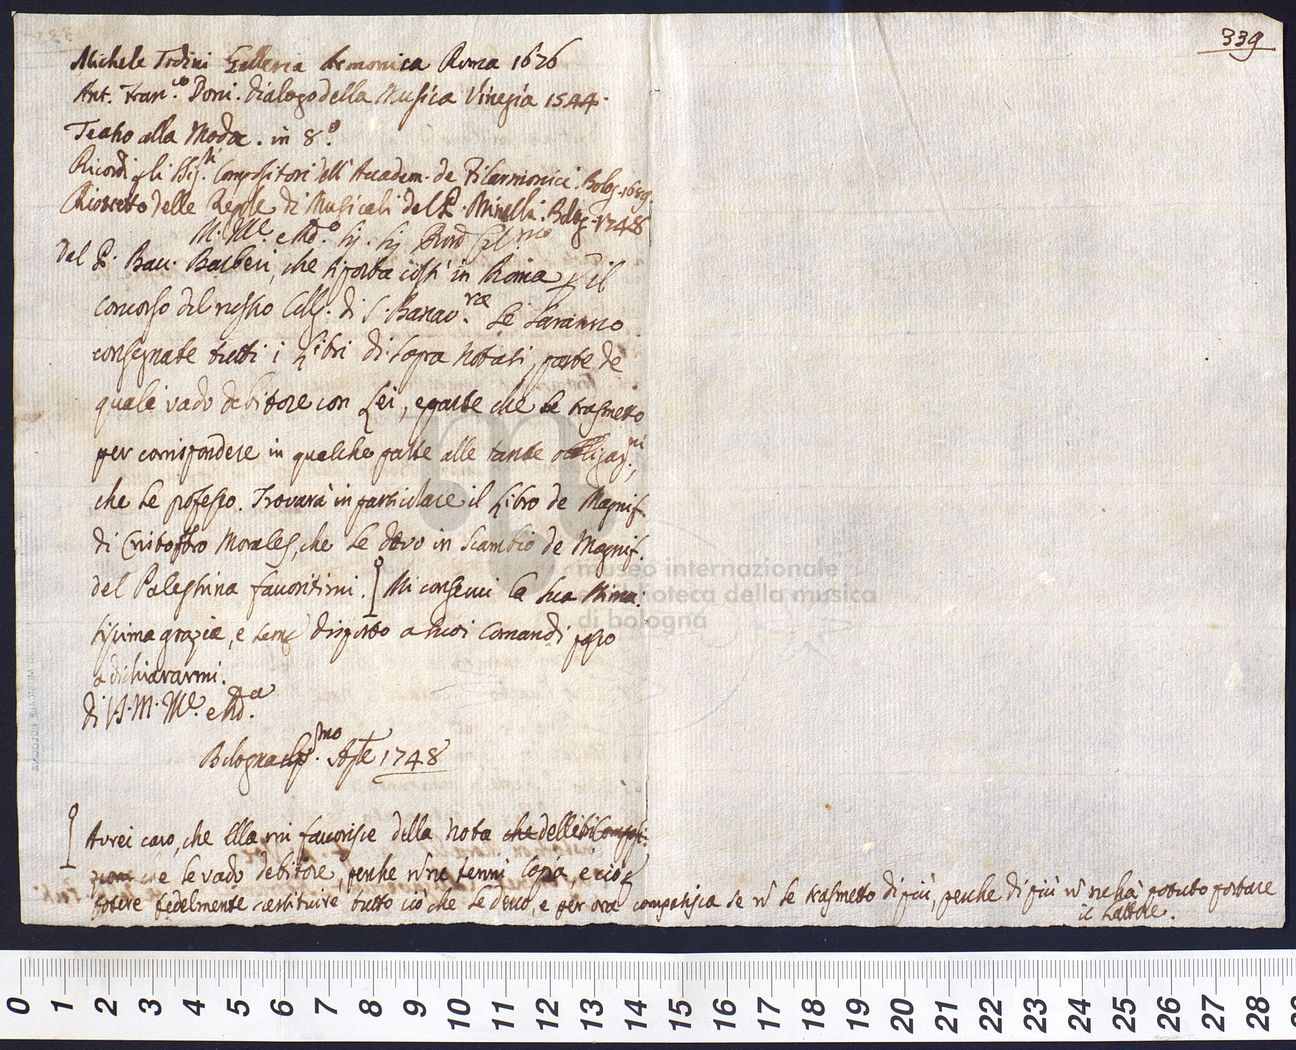 339
Michele Todini Galleria Armonica Roma 1676
Ant. Fran.co Doni. Dialogo della Musica Vinegia 1544.
Teatro alla Moda. in 8.o
Ricordi p gli Sig.ri Compositori dell' Accadem. de Filarmonici. Bolog. 1689
Ristretto delle Regole di Musicali del P. Minelli. Bolog. 1748
M. M.to e Rd.o
Dal P. Bac. Barberi, che si porta costì in Roma p il
concorso del nostro Coll. di S. Bonav.ra Le saranno
consegnate tutti i Libri di sopra Notati, parte de
quali vado debitore con Lei, e parte che Le trasmetto
per corrispondere in qualche parte alle tante obligaz.ni,
che Le professo. Trovarà in particulare il Libro de Magnif.
di Cristoforo Morales, che Le devo in Scambio de Magnif.
del Palestrina favoritimi. Mi conservi la Sua Stima:
tissima grazia, e sempre disposto a suoi Comandi posso
a dichiararmi.
di V. M. M.to e Rd.a
Bologna pmo Aple 1748
Avrei caro, che Ella mi favorisce della Nota che delle
che Le vado debitore, perche n ne tenni Copia, e ciò p
potere fedelmente restituire tutto ciò che Le devo, e per ora compatisca se n Le trasmetto di più, perche di più n ne hà potuto portare
il Lattore.
museo internazionale
e biblioteca della musica
di bologna
0 1 2 3 4 5 6 7 8 9 10 11 12 13 14 15 16 17 18 19 20 21 22 23 24 25 26 27 28